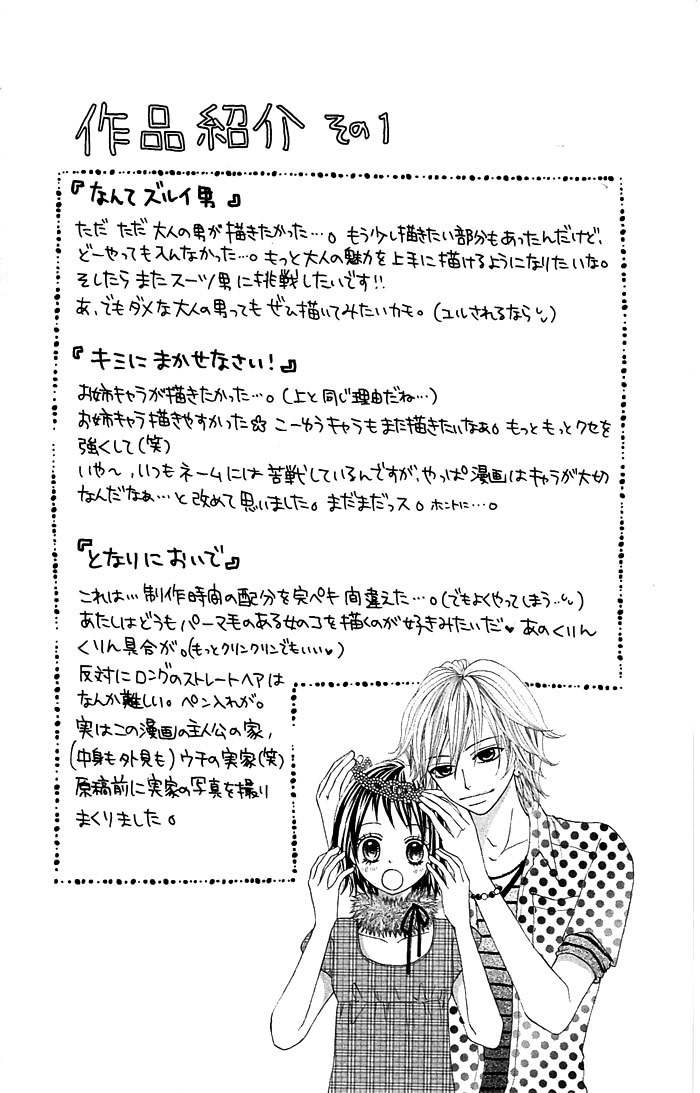 作品紹介 その1
『なんてズルイ男』
ただ ただ 大人の男が描きたかった…。もう少し描きたい部分もあったんだけど、
どーやっても入んなかった…。もっと大人の魅力を上手に描けるようになりたいな。
そしたら またスーツ男に挑戦したいです!!
あ、でもダメな大人の男っても ぜひ描いてみたいカモ。(ユルされるなら)
『キミにまかせなさい!』
お姉キャラが描きたかった…。(上と同じ理由だね…)
お姉キャラ描きやすかった☆ こーゆうキャラもまた描きたいなぁ。もっともっとクセを
強くして(笑)
いや〜、いつもネームには苦戦しているんですが、やっぱ漫画はキャラが大切
なんだなぁ…と改めて思いました。まだまだっス。ホントに…。
『となりにおいで』
これは…制作時間の配分を完ペキ間違えた…。(でもよくやってしまう…)
あたしはどうもパーマモのある女のコを描くのが好きみたいだ♥ あのくりん
くりん具合が。(もっとクリンクリンでもいい♥)
反対にロングのストレートヘアは
なんか難しい。ペン入れが。
実はこの漫画の主人公の家、
(中身も外見も)ウチの実家(笑)
原稿前に実家の写真を撮り
まくりました。